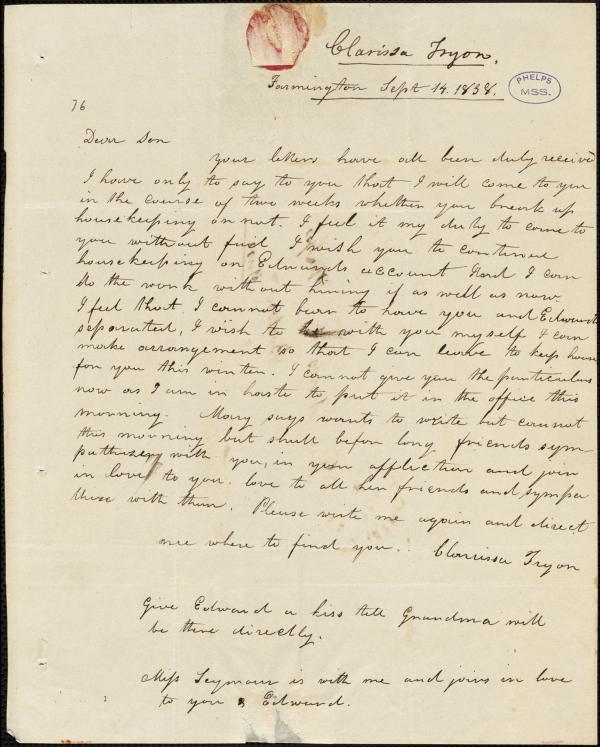 Clarissa Tryon.
Farmington Sept 14. 1838.
PHELPS
MSS.
76
Dear Son
your letters have all been duly received
I have only to say to you that I will come to you
in the course of two weeks whether you break up
housekeeping or not. I feel it my duty to come to
you without fail I wish you to continue
housekeeping on Edwards account And I can
do the work without hiring if as well as now
I feel that I cannot bear to have you and Edward
separated, I wish to be with you myself & can
make arrangement so that I can leave to keep house
for you this winter. I cannot give you the particulars
now as I am in haste to put it in the office this
morning. Mary says wants to write but cannot
this morning but shall before long, friends sym-
pathizey with you, in your affliction and join
in love to you. love to all her friends and sympa
thise with them. Please write me again and direct
me where to find you. Clarrissa Tryon
Give Edward a kiss tell Grandma will
be there directly.
Miss Seymour is with me and joins in love
to you & Edward.